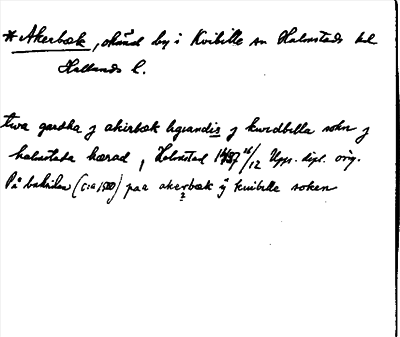 *Akerbæk, okänd by i Kvibille sn Halmstads hd
Hallands l.
twa gardha j akirbæk liggiandis j kwidbilla sokn j
halmstada hærad, Halmstad 1487 26/12 Upps. dipl. orig.
På baksidan (c:a 1500) paa akerbæk j kuibille soken